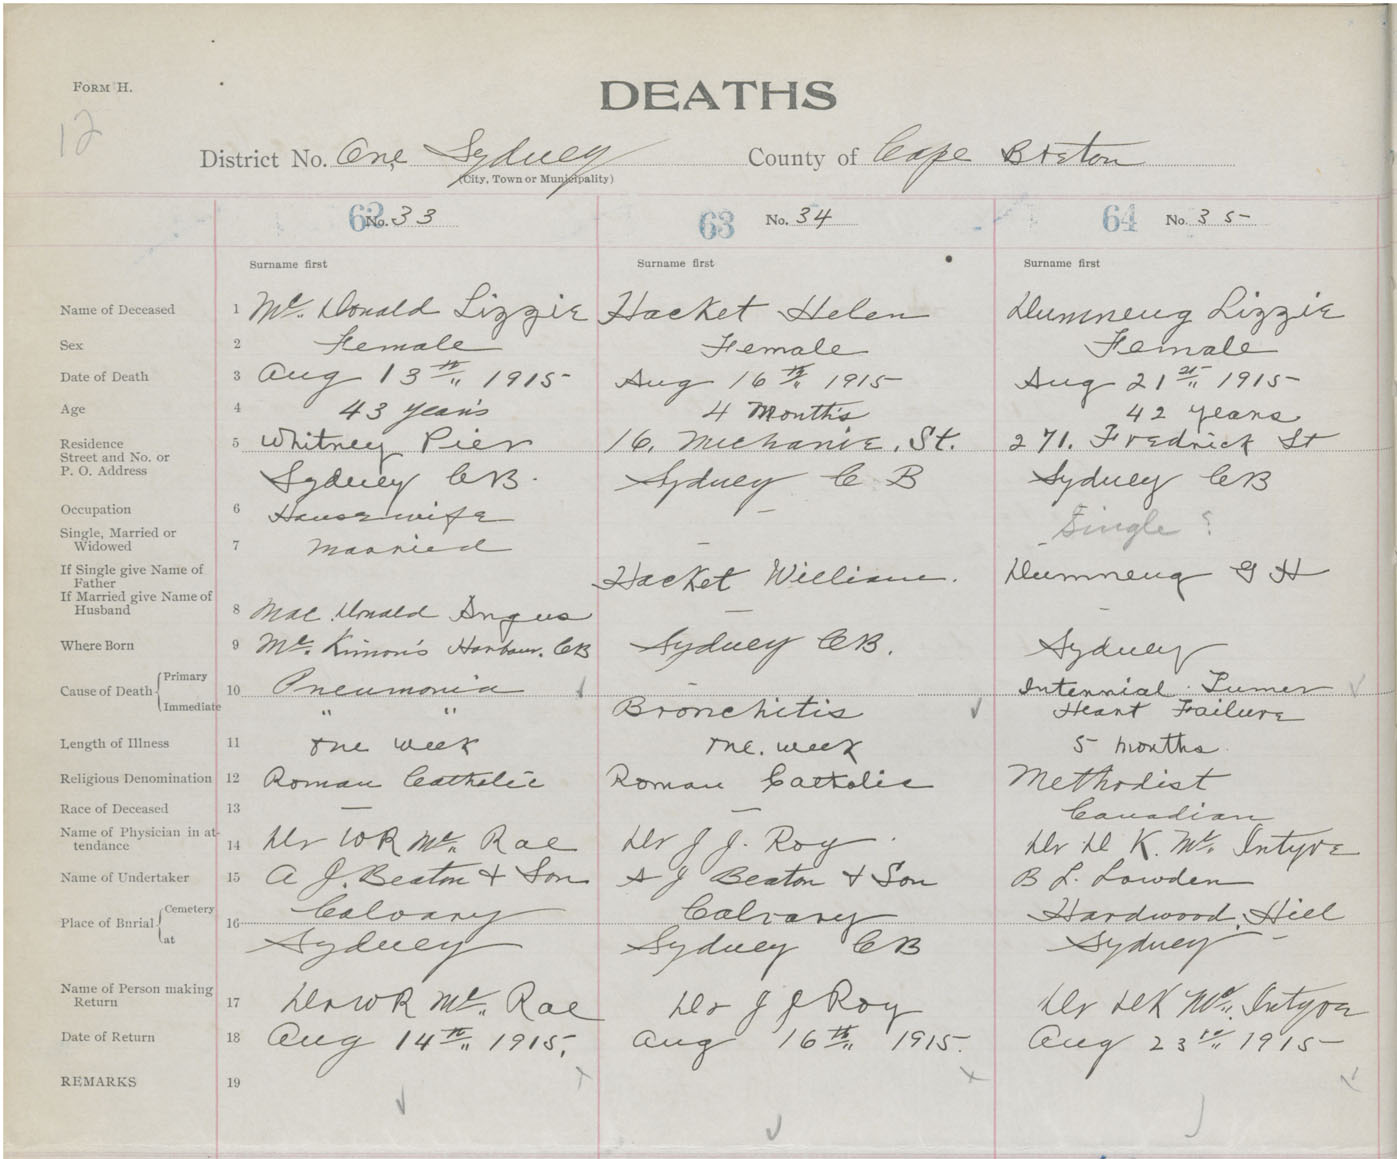 FORM H.
DEATHS
12
District No. One, Sydney County of Cape Breton
(City, Town or Municipality)
62 No. 33 63 No. 34 64 No. 35
Surname first Surname first Surname first
Name of Deceased 1 Mc. Donald Lizzie Hacket Helen Lizzie
Sex 2 Female Female Female
Date of Death 3 Aug 13th 1915 Aug 16th 1915 Aug 21st 1915
Age 4 43 years 4 Months 42 years
Residence 5 Whitney Pier 16. Mechanic. St. 271. Fredrick St
Street and No. or
P. O. Address Sydney CB. Sydney C B Sydney CB
Occupation 6 Housewife –
Single, Married or Single ?
Widowed 7 Married – –
If Single give Name of
Father Hacket William. G H
If Married give Name of
Husband 8 Mac. Donald Angus – –
Where Born 9 Mc. Kinnon's Harbour. CB Sydney CB. Sydney
Cause of Death Primary 10 Pneumonia – Tumer
Immediate " " Bronchitis Heart Failure
Length of Illness 11 One week One. week 5 months
Religious Denomination 12 Roman Catholic Roman Catholic Methodist
Race of Deceased 13 – – Canadian
Name of Physician in at-
tendance 14 Dr WR Mc. Rae Dr J J. Roy Dr D K. Mc. Intyre
Name of Undertaker 15 A J. Beaton & Son A J Beaton & Son B L. Lowden
Place of Burial Cemetery 16 Calvary Calvary Hardwood Hill
at Sydney Sydney CB Sydney
Name of Person making
Return 17 Dr WR Mc. Rae Dr J J Roy Dr DK Mc. Intyre
Date of Return 18 Aug 14th 1915. Aug 16th 1915. Aug 23rd 1915
REMARKS 19